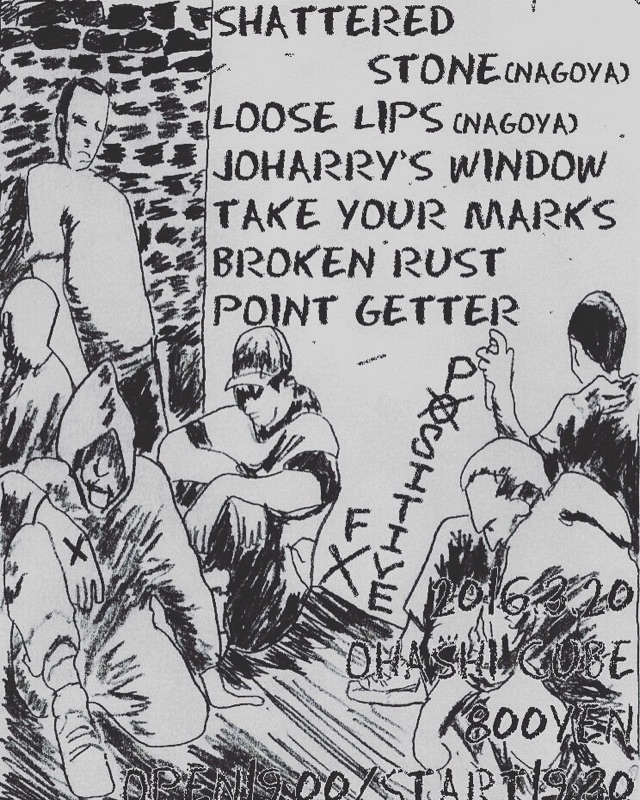 SHATTERED
STONE (NAGOYA)
LOOSE LIPS (NAGOYA)
JOHARRY'S WINDOW
TAKE YOUR MARKS
BROKEN RUST
POINT GETTER
POSITIVE
F
X
X
2016.3.20
OHASHI CUBE
800YEN
OPEN19:00/START19:30